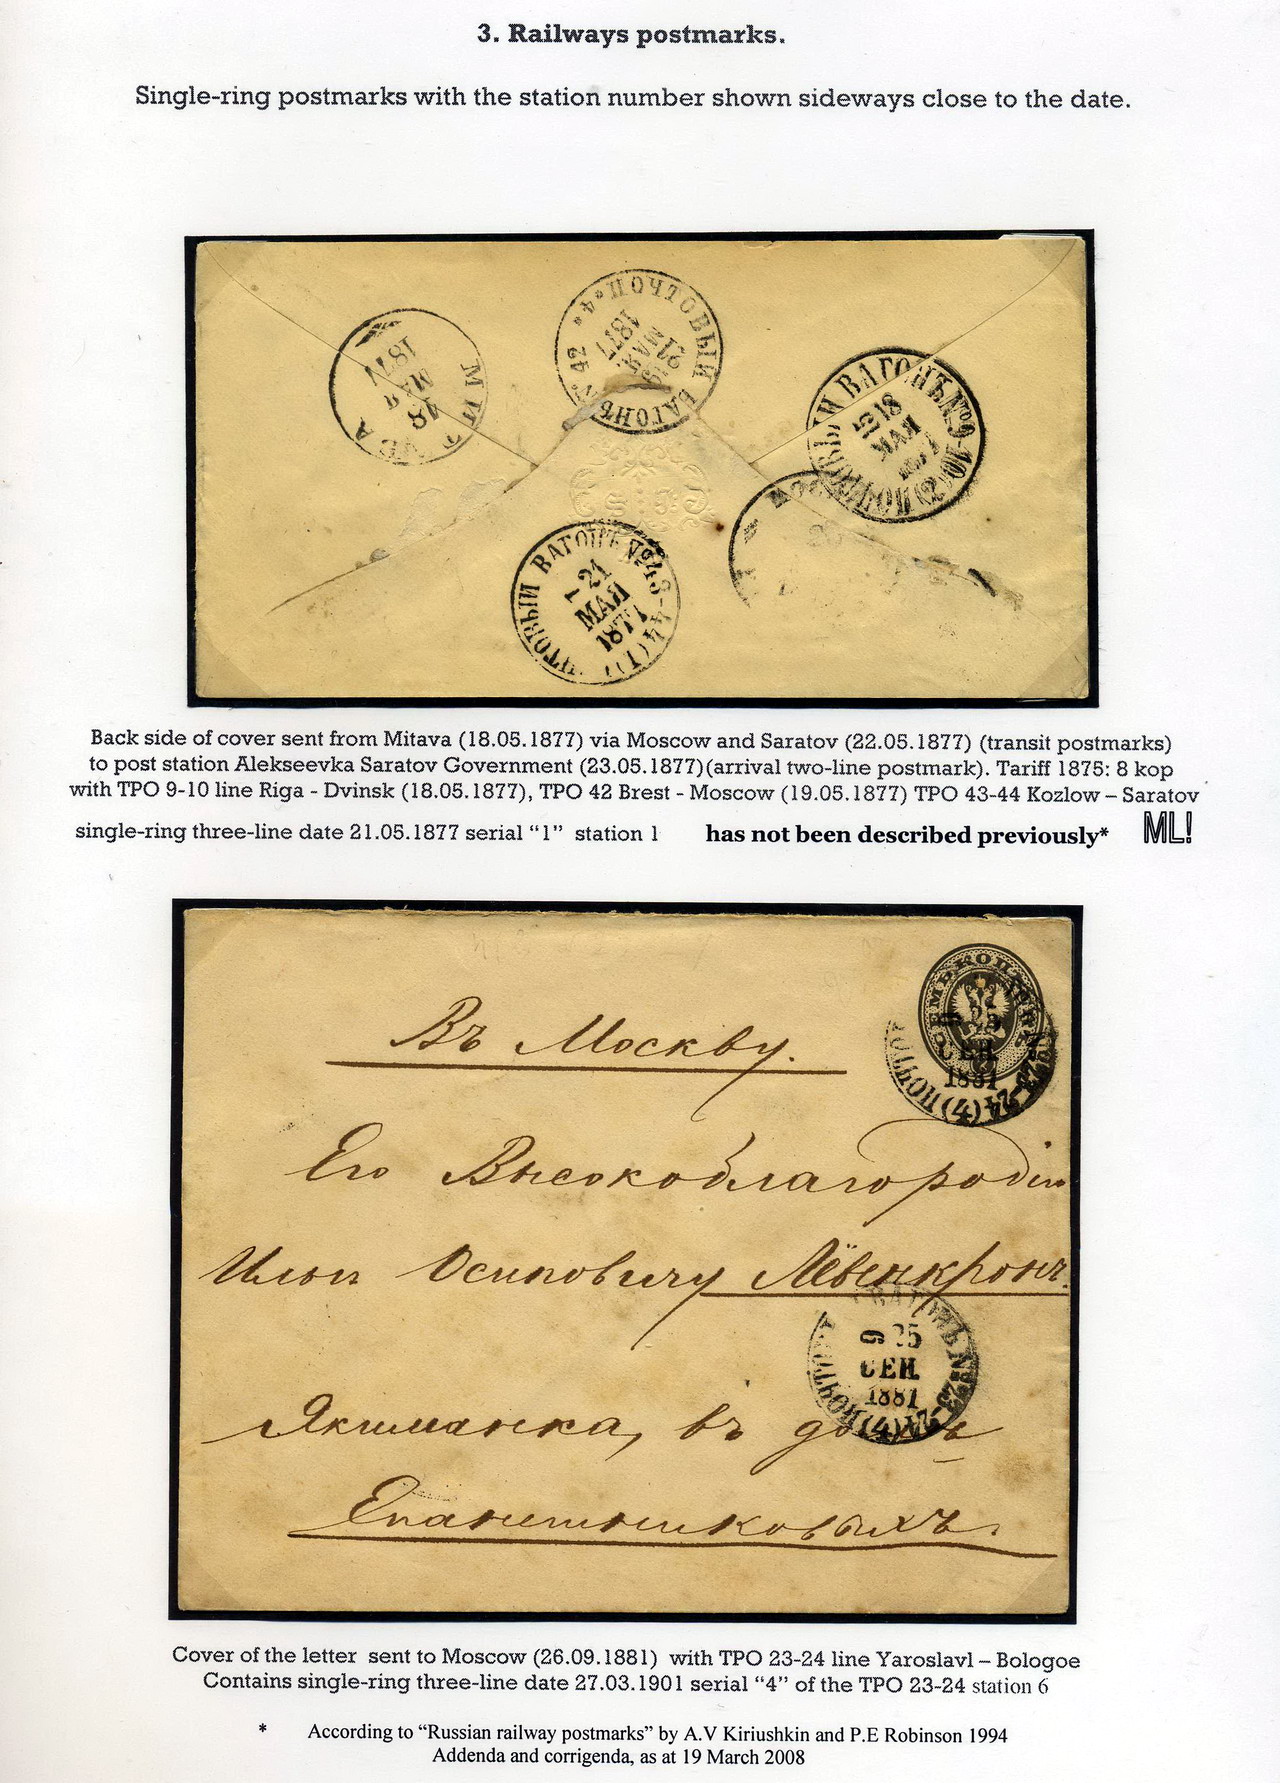 3. Railways postmarks.
Single-ring postmarks with the station number shown sideways close to the date.
МИТАВА
18
МАЯ
1877
ПОЧТОВЫЙ ВАГОНЪ № 42 * 4 *
21
МАЯ
1877
ПОЧТОВЫЙ ВАГОНЪ № 9-10 (2)
18
МАЯ
1877
ПОЧТОВЫЙ ВАГОНЪ № 43-44 (1)
1 21
МАЯ
1877
Back side of cover sent from Mitava (18.05.1877) via Moscow and Saratov (22.05.1877) (transit postmarks)
to post station Alekseevka Saratov Government (23.05.1877)(arrival two-line postmark). Tariff 1875: 8 kop
with TPO 9-10 line Riga - Dvinsk (18.05.1877), TPO 42 Brest - Moscow (19.05.1877) TPO 43-44 Kozlow – Saratov
single-ring three-line date 21.05.1877 serial "1" station 1 has not been described previously* ML!
СЕМЬ КОП.
СЕН.
1881
ПОЧТО (4) 23-24
Въ Москву.
Его Высокоблагородію
Ильи Осиповичу Лёвенкронъ.
ВАГОНЪ № 23-24 (4) ПОЧТО
6 25
СЕН.
1881
Якиманка, въ домѣ
Епанешниковыхъ.
Cover of the letter sent to Moscow (26.09.1881) with TPO 23-24 line Yaroslavl – Bologoe
Contains single-ring three-line date 27.03.1901 serial "4" of the TPO 23-24 station 6
* According to "Russian railway postmarks" by A.V Kiriushkin and P.E Robinson 1994
Addenda and corrigenda, as at 19 March 2008